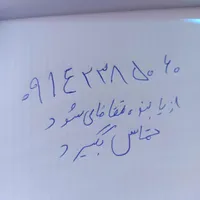 ۰۹۱٤۲۳۸۵۰۶۰
از یابنده تقاضا می شود
تماس بگیرد